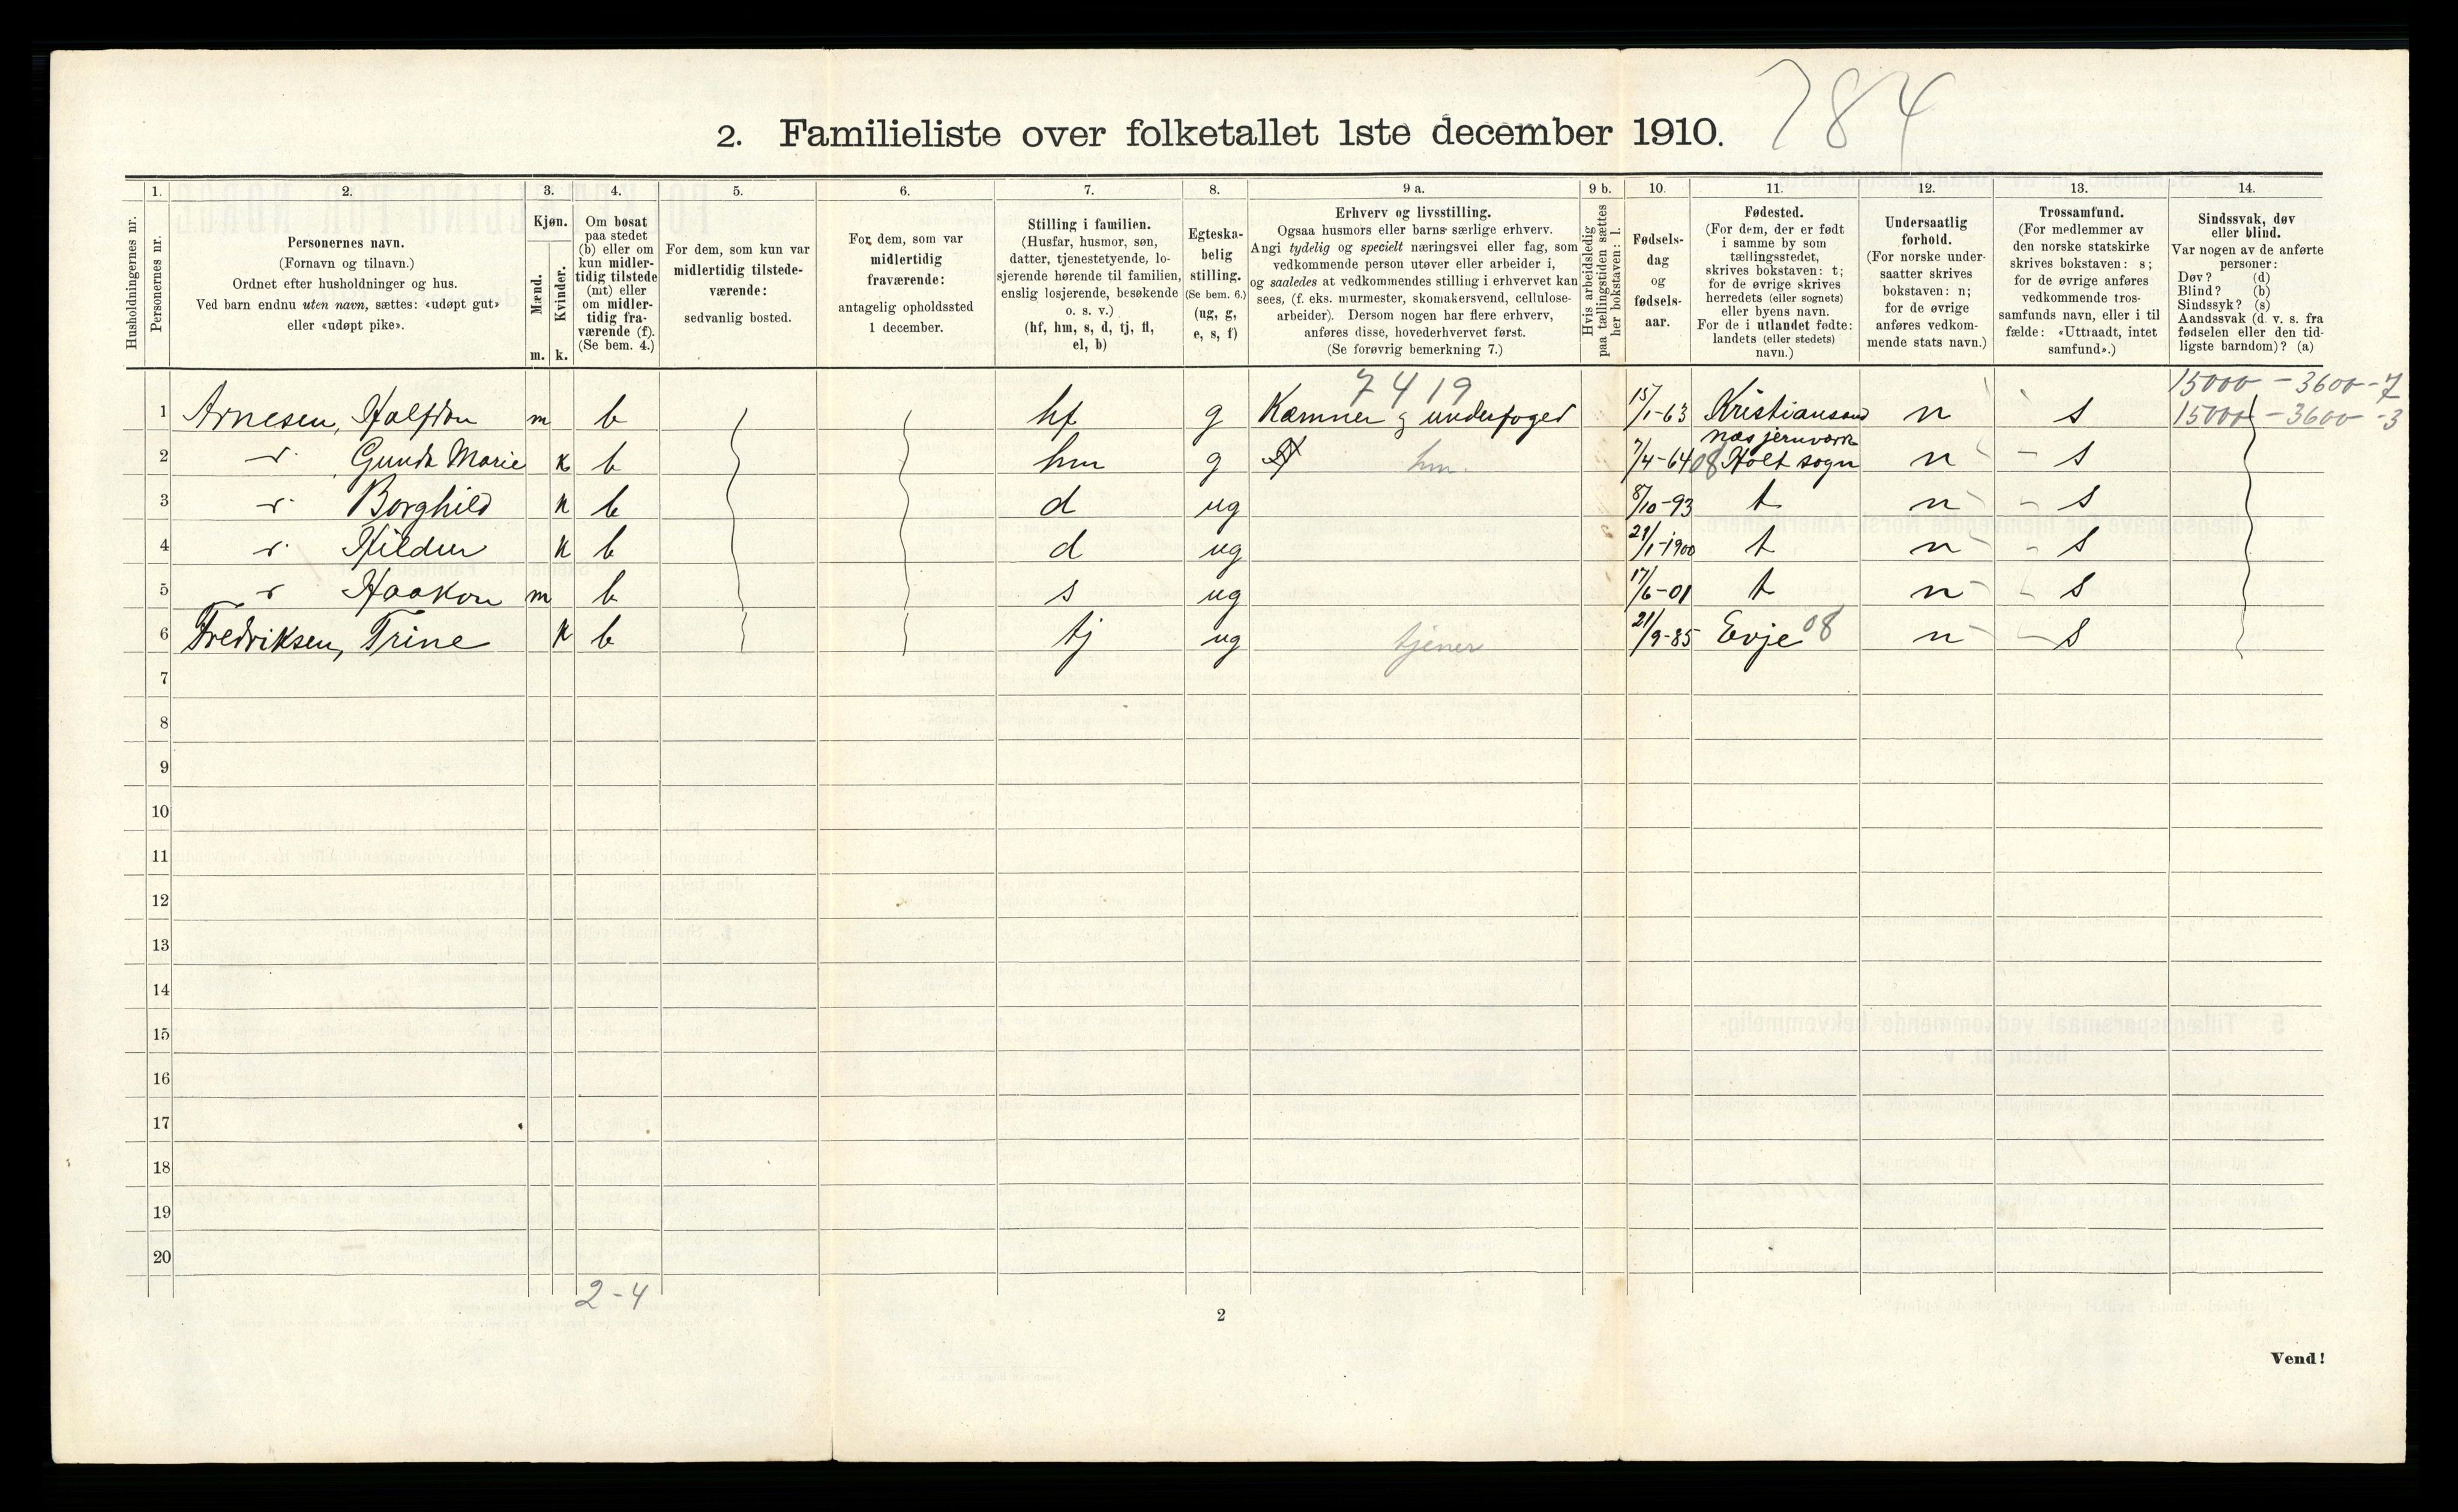 784
2. Familieliste over folketallet 1ste december 1910.
Husholdningernes nr.
1.
Personernes nr.
2.
Personernes navn.
(Fornavn og tilnavn.)
Ordnet efter husholdninger og hus.
Ved barn endnu uten navn, sættes: «udøpt gut»
eller «udøpt pike».
3.
Kjøn.
Mænd.
Kvinder.
m. k.
4.
Om bosat
paa stedet
(b) eller om
kun midler-
tidig tilstede
(mt) eller
om midler-
tidig fra-
værende (f).
(Se bem. 4.)
5.
For dem, som kun var
midlertidig tilstede-
værende:
sedvanlig bosted.
6.
For dem, som var
midlertidig
fraværende:
antagelig opholdssted
1 december.
7.
Stilling i familien.
(Husfar, husmor, søn,
datter, tjenestetyende, lo-
sjerende hørende til familien,
enslig losjerende, besøkende
o. s. v.)
(hf, hm, s, d, tj, fl,
el, b)
8.
Egteska-
belig
stilling.
(Se bem. 6.)
(ug, g,
e, s, f)
9 a.
Erhverv og livsstilling.
Ogsaa husmors eller barns særlige erhverv.
Angi tydelig og specielt næringsvei eller fag, som
vedkommende person utøver eller arbeider i,
og saaledes at vedkommendes stilling i erhvervet kan
sees, (f. eks. murmester, skomakersvend, cellulose-
arbeider). Dersom nogen har flere erhverv,
anføres disse, hovederhvervet først.
(Se forøvrig bemerkning 7.)
9 b.
Hvis arbeidsledig
paa tællingstiden sættes
her bokstaven: l.
10.
Fødsels-
dag
og
fødsels-
aar.
11.
Fødested.
(For dem, der er født
i samme by som
tællingsstedet,
skrives bokstaven: t;
for de øvrige skrives
herredets (eller sognets)
eller byens navn.
For de i utlandet fødte:
landets (eller stedets)
navn.)
12.
Undersaatlig
forhold.
(For norske under-
saatter skrives
bokstaven: n;
for de øvrige
anføres vedkom-
mende stats navn.)
13.
Trossamfund.
(For medlemmer av
den norske statskirke
skrives bokstaven: s;
for de øvrige anføres
vedkommende tros-
samfunds navn, eller i til
fælde: «Uttraadt, intet
samfund».)
14.
Sindssvak, døv
eller blind.
Var nogen av de anførte
personer:
Døv? (d)
Blind? (b)
Sindssyk? (s)
Aandssvak (d. v. s. fra
fødselen eller den tid-
ligste barndom)? (a)
7419
15000 - 3600 - 7
1 Arnesen, Halfdan m b hf g Kæmner & underfoged 15/1-63 Kristiansand n s 15000 - 3600 - 3
næs jernværk
2 Gunda Marie k b hm g hm. 7/4-64 08 Holt sogn n - s
3 Borghild k b d ug 8/10-93 t n - s
4 Hildur k b d ug 21/1-1900 t n - s
5 Haakon m b s ug 17/6-01 t n - s
6 Fredriksen, Trine k b tj ug tjener 21/9-85 Evje 08 n - s
7
8
9
10
11
12
13
14
15
16
17
18
19
20
2-4
2
Vend!